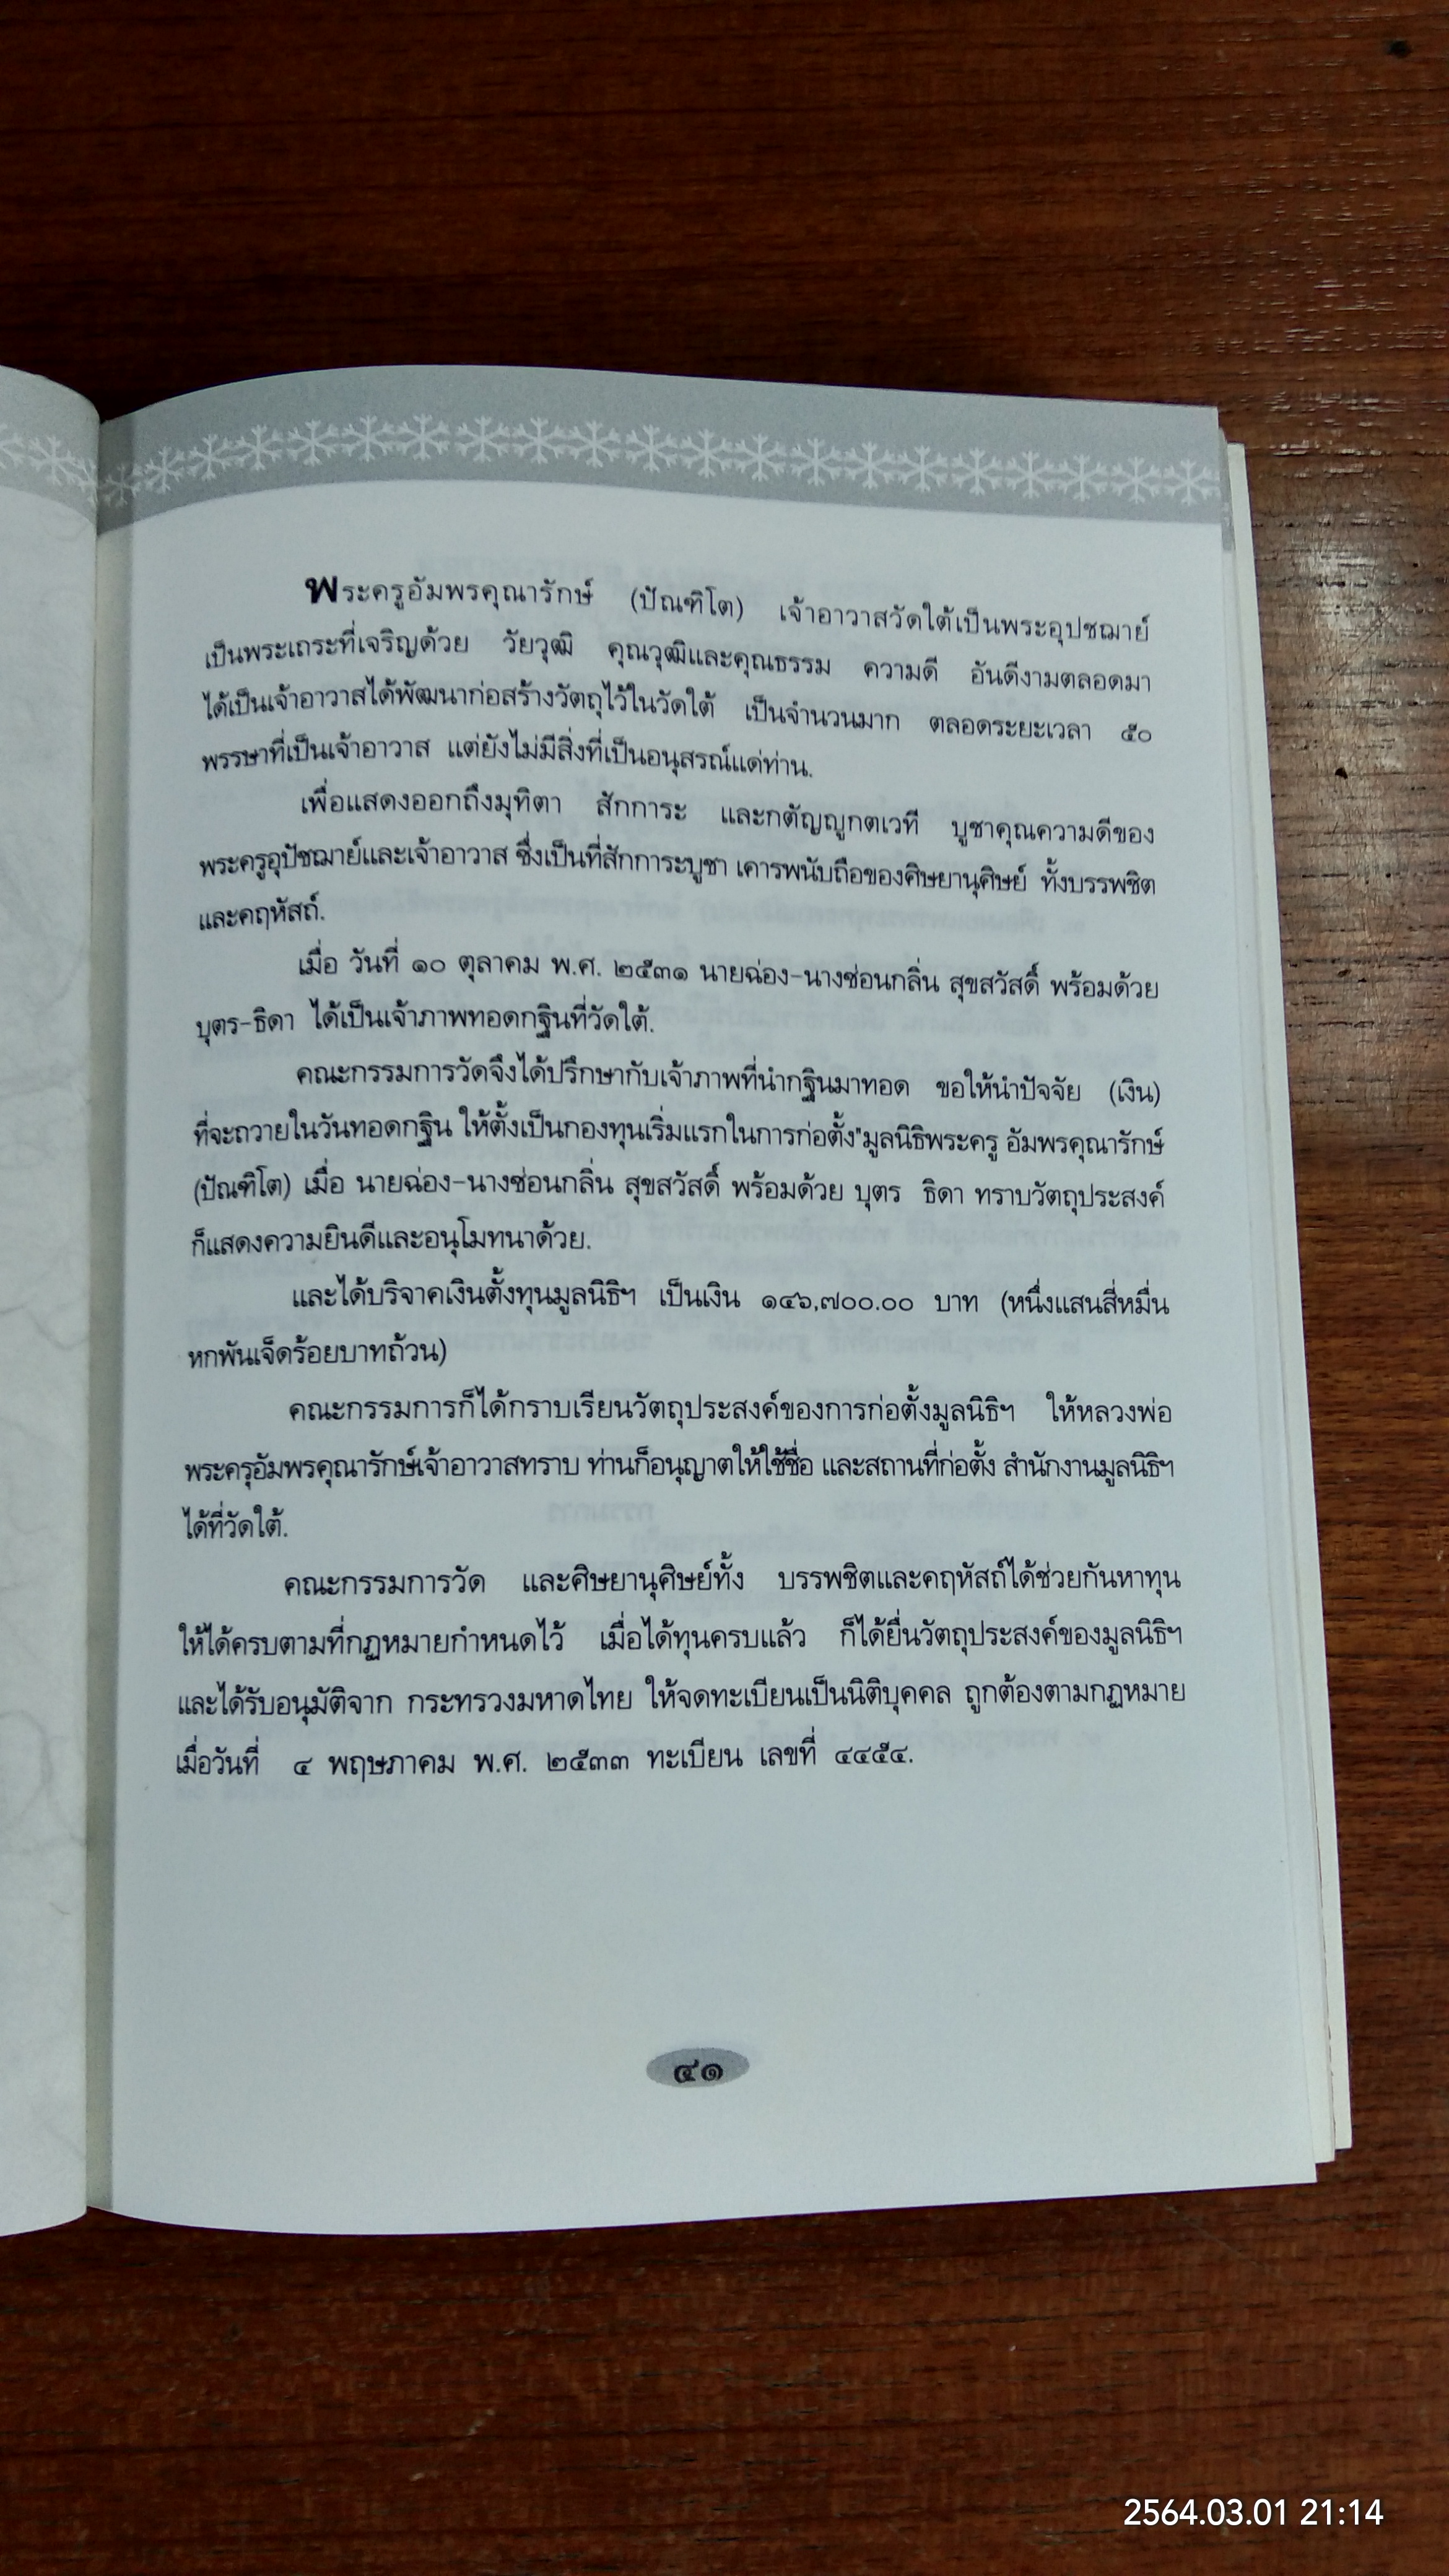 พระครูอัมพรคุณารักษ์ (ปัณฑิโต) เจ้าอาวาสวัดใต้เป็นพระอุปชฌาย์
เป็นพระเถระที่เจริญด้วย วัยวุฒิ คุณวุฒิและคุณธรรม ความดี อันดีงามตลอดมา
ได้เป็นเจ้าอาวาสได้พัฒนาก่อสร้างวัตถุไว้ในวัดใต้ เป็นจำนวนมาก ตลอดระยะเวลา ๕๐
พรรษาที่เป็นเจ้าอาวาส แต่ยังไม่มีสิ่งที่เป็นอนุสรณ์แด่ท่าน.
เพื่อแสดงออกถึงมุทิตา สักการะ และกตัญญูกตเวที บูชาคุณความดีของ
พระครูอุปัชฌาย์และเจ้าอาวาส ซึ่งเป็นที่สักการะบูชา เคารพนับถือของศิษยานุศิษย์ ทั้งบรรพชิต
และคฤหัสถ์.
เมื่อ วันที่ ๑๐ ตุลาคม พ.ศ. ๒๕๓๑ นายฉ่อง-นางซ่อนกลิ่น สุขสวัสดิ์ พร้อมด้วย
บุตร-ธิดา ได้เป็นเจ้าภาพทอดกฐินที่วัดใต้.
คณะกรรมการวัดจึงได้ปรึกษากับเจ้าภาพที่นำกฐินมาทอด ขอให้นำปัจจัย (เงิน)
ที่จะถวายในวันทอดกฐิน ให้ตั้งเป็นกองทุนเริ่มแรกในการก่อตั้ง"มูลนิธิพระครู อัมพรคุณารักษ์
(ปัณฑิโต) เมื่อ นายฉ่อง-นางซ่อนกลิ่น สุขสวัสดิ์ พร้อมด้วย บุตร ธิดา ทราบวัตถุประสงค์
ก็แสดงความยินดีและอนุโมทนาด้วย.
และได้บริจาคเงินตั้งทุนมูลนิธิฯ เป็นเงิน ๑๔๖,๗๐๐.๐๐ บาท (หนึ่งแสนสี่หมื่น
หกพันเจ็ดร้อยบาทถ้วน)
คณะกรรมการก็ได้กราบเรียนวัตถุประสงค์ของการก่อตั้งมูลนิธิฯ ให้หลวงพ่อ
พระครุอัมพรคุณารักษ์เจ้าอาวาสทราบ ท่านก็อนุญาตให้ใช้ชื่อ และสถานที่ก่อตั้ง สำนักงานมูลนิธิฯ
ได้ที่วัดใต้.
คณะกรรมการวัด และศิษยานุศิษย์ทั้ง บรรพชิตและคฤหัสถ์ได้ช่วยกันหาทุน
ให้ได้ครบตามที่กฏหมายกำหนดไว้ เมื่อได้ทุนครบแล้ว ก็ได้ยื่นวัตถุประสงค์ของมูลนิธิฯ
และได้รับอนุมัติจาก กระทรวงมหาดไทย ให้จดทะเบียนเป็นนิติบุคคล ถูกต้องตามกฏหมาย
เมื่อวันที่ ๔ พฤษภาคม พ.ศ. ๒๕๓๓ ทะเบียน เลขที่ ๔๔๕๔.
๔๑
2564.03.01 21:14